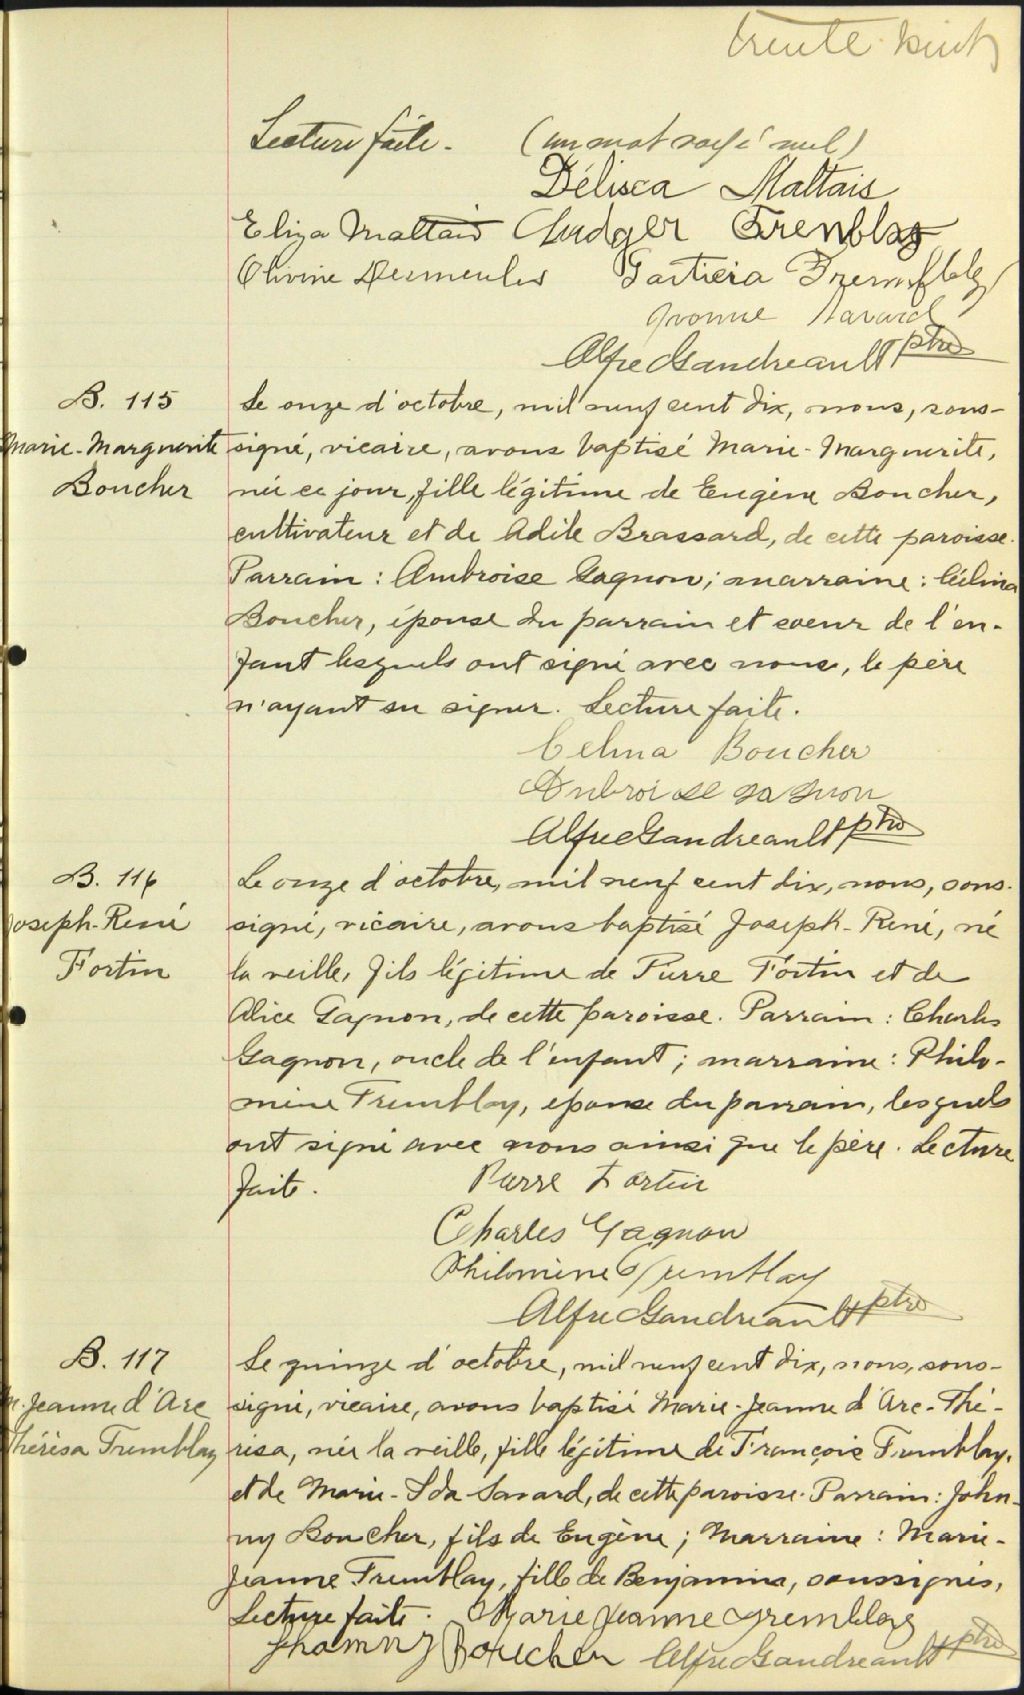 trente-huit
Lecture faite. (un mot rayé nul)
Délisca Maltais
Eliza Maltais Ludger Tremblay
Olivine Desmeules Tremblay
Yvonne Savard
Alfred Gaudreault ptre
B. 115
Marie-Marguerite
Boucher
Le onze d'octobre, mil neuf cent dix, nous, sous-
signé, vicaire, avons baptisé Marie-Marguerite,
née ce jour, fille légitime de Eugène Boucher,
cultivateur et de Adile Brassard, de cette paroisse.
Parrain : Ambroise Gagnon ; marraine : Célina
Boucher, épouse du parrain et soeur de l'en-
fant lesquels ont signé avec nous, le père
n'ayant su signer. Lecture faite.
Celina Boucher
Ambroise Gagnon
Alfred Gaudreault ptre
B. 116
Joseph-René
Fortin
Le onze d'octobre, mil neuf cent dix, nous, sous-
signé, vicaire, avons baptisé Joseph-René, né
la veille, fils légitime de Pierre Fortin et de
Alice Gagnon, de cette paroisse. Parrain : Charles
Gagnon, oncle de l'enfant ; marraine : Philo-
mène Tremblay, épouse du parrain, lesquels
ont signé avec nous ainsi que le père. Lecture
faite. Pierre Fortin
Charles Gagnon
Philomène Tremblay
Alfred Gaudreault ptre
B. 117
M. Jeanne d'Arc
Thérèsa Tremblay
Le quinze d'octobre, mil neuf cent dix, nous, sous-
signé, vicaire, avons baptisé Marie-Jeanne d'Arc-Thé-
rèsa, née la veille, fille légitime de François Tremblay,
et de Marie-Ida Savard, de cette paroisse. Parrain : John-
ny Boucher, fils de Eugène ; Marraine : Marie-
Jeanne Tremblay, fille de Benjamin, soussignés,
Lecture faite. Marie Jeanne Tremblay
Jhonny Boucher Alfred Gaudreault ptre